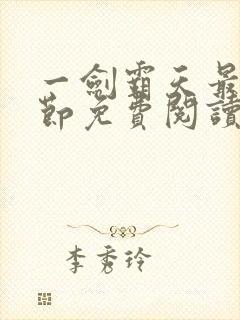 一劍霸天最
節免費閱讀
李秀玲